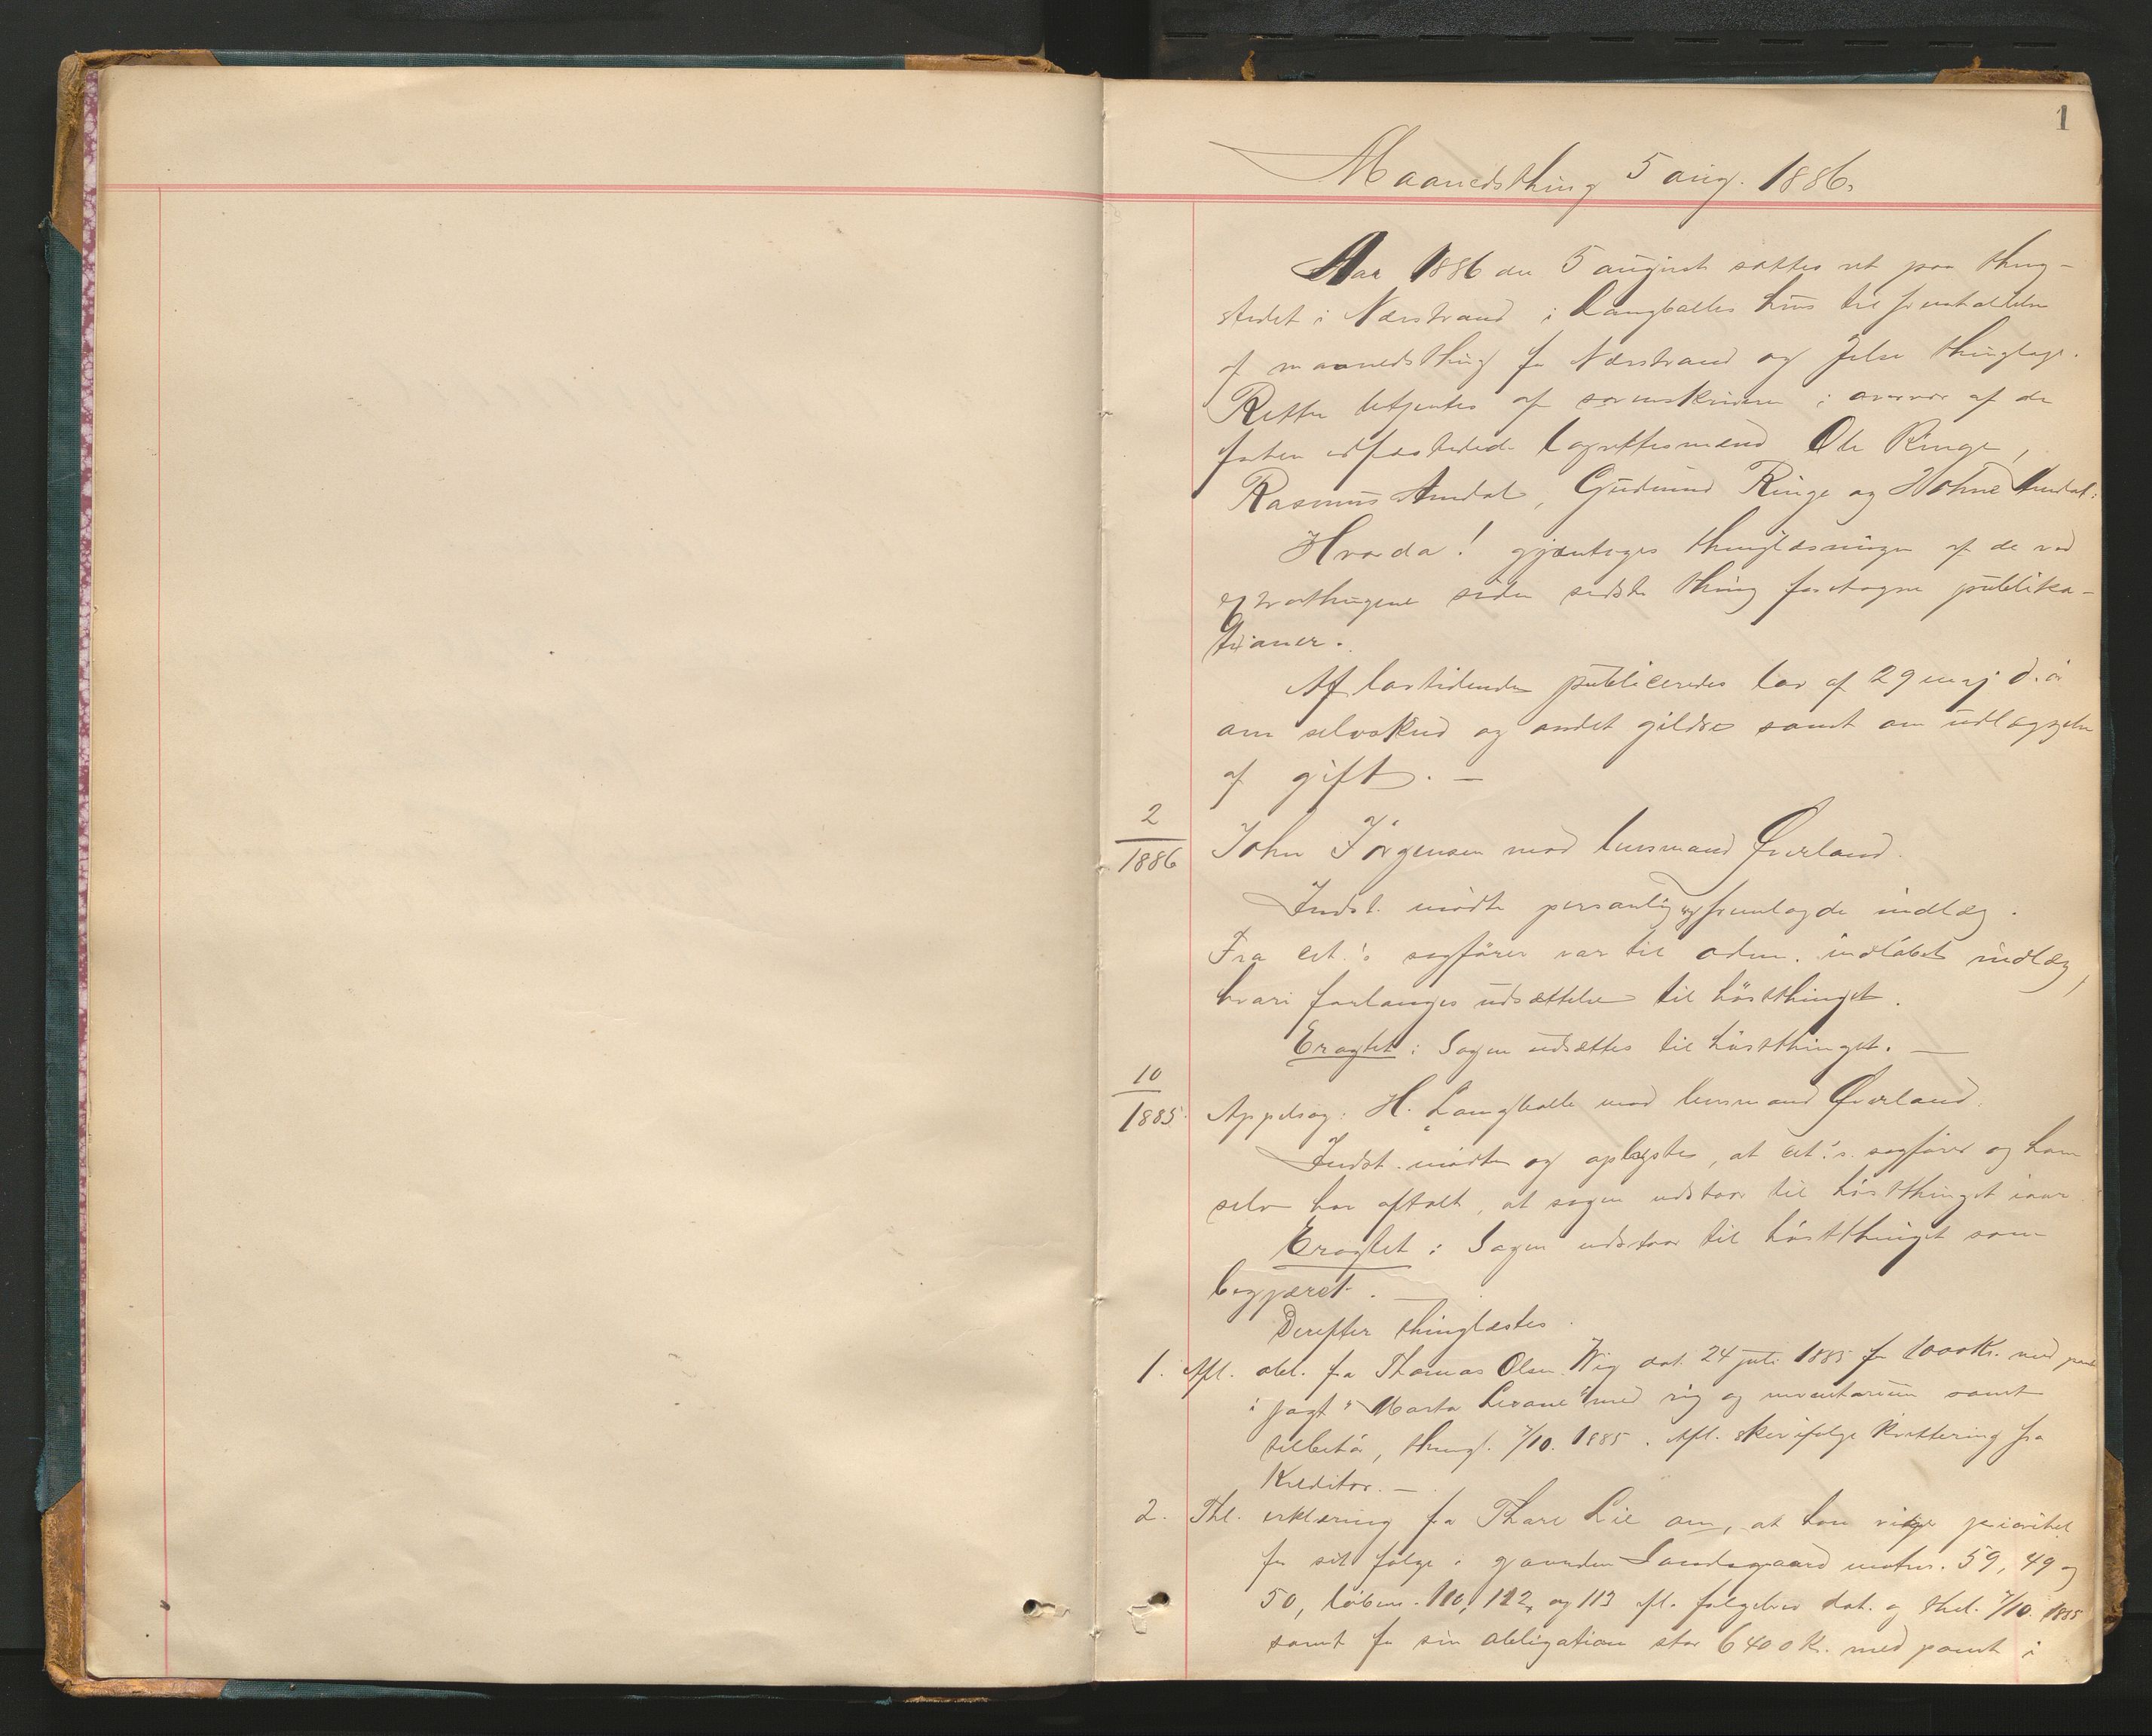 1
Maanedsthing 5 aug. 1886.
Aar 1886 den 5 august sattes ret paa thing-
stedet i Nærstrand i Langballes hus til fremholdelse
af maanedsthing for Nærstrand og Jelse thinglage.
Retten betjentes af sorenskriveren i overvær af de
Lagrettesmænd Ole Ringe,
Rasmus Amdal, Gudmund Ringe og Amdal:
Hvorda! gjentages thinglæsningen af de ved
extrathingene siden sidste thing foretagne publika-
tioner.
Af lovtidenden publiceredes lov af 29 maj d. å
om selvskud og andet gildre samt om udlæggelse
af gift. —
2
1886
John Jörgensen mod lensmand Qverland.
Indst. mödte personlig og fremlagde indlæg.
Fra cit.'s sagförer var til adm. indlöbet indlæg,
hvori forlanges udsættelse til höstthinget.
Eragtet: Sagen udsættes til höstthinget. —
10
1885.
Appelsag: H. Langballe mod lensmand Qverland.
Indst. mödte og oplystes, at cit.'s sagförer og han
selv har aftalt, at sagen udstaar til höstthinget iaar.
Eragtet: Sagen udstaar til höstthinget som
begjæret. —
Derefter thinglæstes.
1. Afl. obl. fra Thomas Olsen Vig dat. 24 juli 1885 for 1000 Kr. med pant
i jagt "Marta Lovane" med rig og inventarium samt
tilbehör, thingl. 7/10. 1885. Afl. sker ifölge kvittering fra
Kreditor. —
2. Thl. erklæring fra Thore Lie om, at han viger prioritet
for sit fölge i gaarden Sandsgaard matr. 59, 49 og
50, löben. 110, 112, og 113 efl. fölgebrev dat. og thl. 7/10. 1885
samt for sin obligation stor 6400 Kr. med pant i